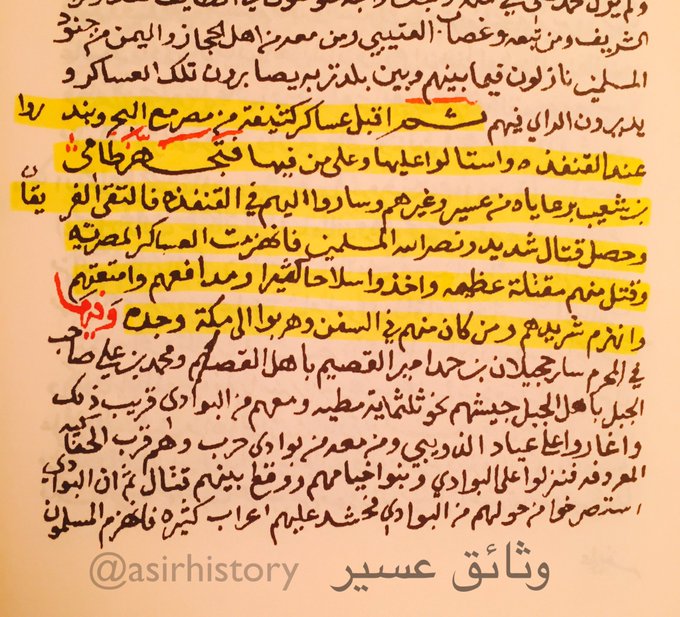 الشريف ومن تبعه وغصاب العتيبي ومن معه من اهل الحجاز واليمن من جنود
المسلمين نازلون فيما بينهم وبين بلد تربه يصابرون تلك العساكر و
يدبرون الراي فيهم ثم اقبل عساكر كثيفة من مصر مع البحر وبندروا
عند القنفذه واستالوا عليها وعلى من فيها فتجهز طامي
بن شعيب برعاياه من عسير وغيرهم وساروا اليهم في القنفذه فالتقى الفريقان
وحصل قتال شديد ونصر الله المسلمين فانهزمت العساكر المصريه
وقتل منهم مقتلة عظيمه واخذوا سلاحا كثيرا ومدافعهم وامتعتهم
وانهزم شريدهم ومن كان منهم في السفن وهربوا الى مكة وجده وفيها
في المحرم سار حجيلان بن حمد امير القصيم باهل القصيم ومحمد بن علي صاحب
الجبل باهل الجبل جيشهم نحو ثلثماية مطيه ومعهم من البوادي قريب ذلك
واغاروا على عياد الذويبي ومن معه من بوادي حرب وهم قرب الحناكيه
المعروفه فنزلوا على البوادي وبنوا خيامهم ووقع بينهم قتال ثم ان البوادي
استصرخوا من حولهم من البوادي فحشد عليهم اعراب كثيره فانهزم المسلمون
@asirhistory وثائق عسير